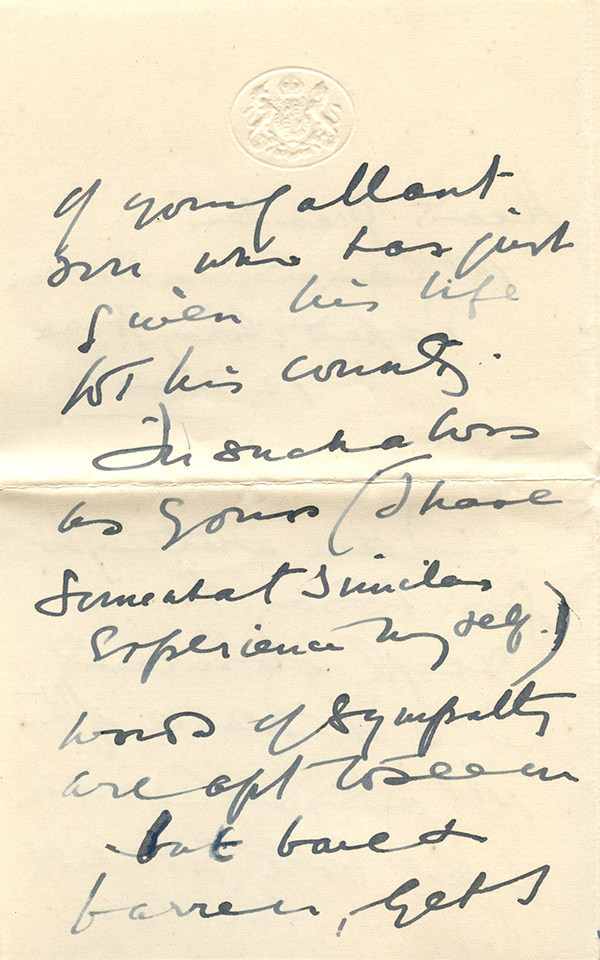 of your gallant
son who has just
given his life
for his country.
In such a loss
as yours (I have
somewhat similar
experience myself.)
words of sympathy
are apt to seem
but bare &
barren, yet I